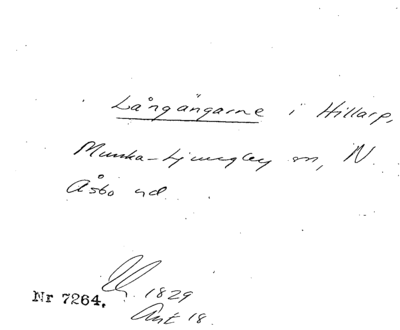 Långängarne i Hillarp,
Munka-Ljungby sn, N.
Åsbo hd
1829
Nr 7264. Ant 18.